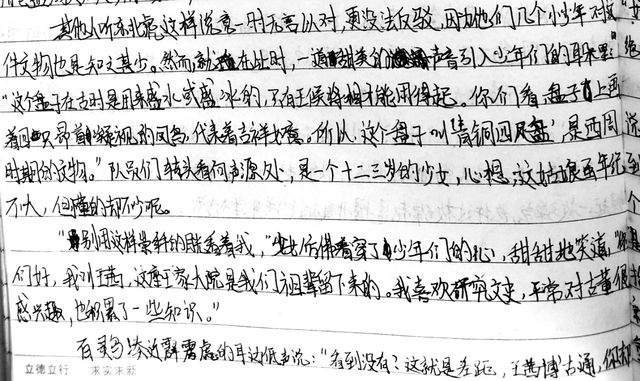 其他小听东北虎这样说竟一时无言以对,更没法反驳,因为他们几个小少年对这
件文物也是知之甚少。然而就在此时,一道甜美的声音引入少年们的耳里:
“这个盘子在古时是用来盛水或盛冰的,只有王侯将相才能用得起。你们看,盘子上面
着四只昂首凝视的凤鸟,代表着吉祥如意。所以这个盘子叫‘青铜四凤盘’,是西周
时期的文物。”队员们转头看向声源处,是一个十二三岁的少女,心想,这姑娘虽年纪
不大,但懂的却不少呢。
“别用这样崇拜的眼神看着我,”少女仿佛看穿了少年们的心,甜甜地笑道,“你
们好,我叫王茜,这座王家大院是我们祖辈留下来的。我喜欢研究文史,平常对古董很
感兴趣,也积累了一些知识。”
百灵鸟凑近霹雳虎的耳边低声说:“看到没有?这就是差距,王茜博古通,你
立德立行 求实求新